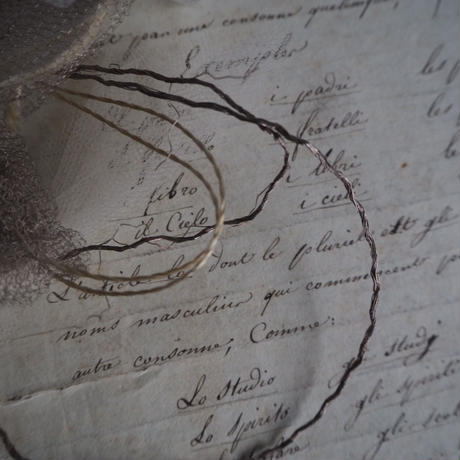 par une consonne quelconque,
Exemples
i padri les p
fratelli les
i libri le
libro i cieli
il Cielo
L'article lo dont le pluriel est gli
noms masculins qui commencent
autre consonne, Comme:
Lo Studio gli studj
Lo Spirito gli spiriti
gli